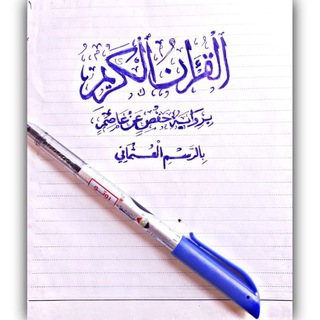 القرآن الكريم
برواية حفص عن عاصم
بالرسم العثماني